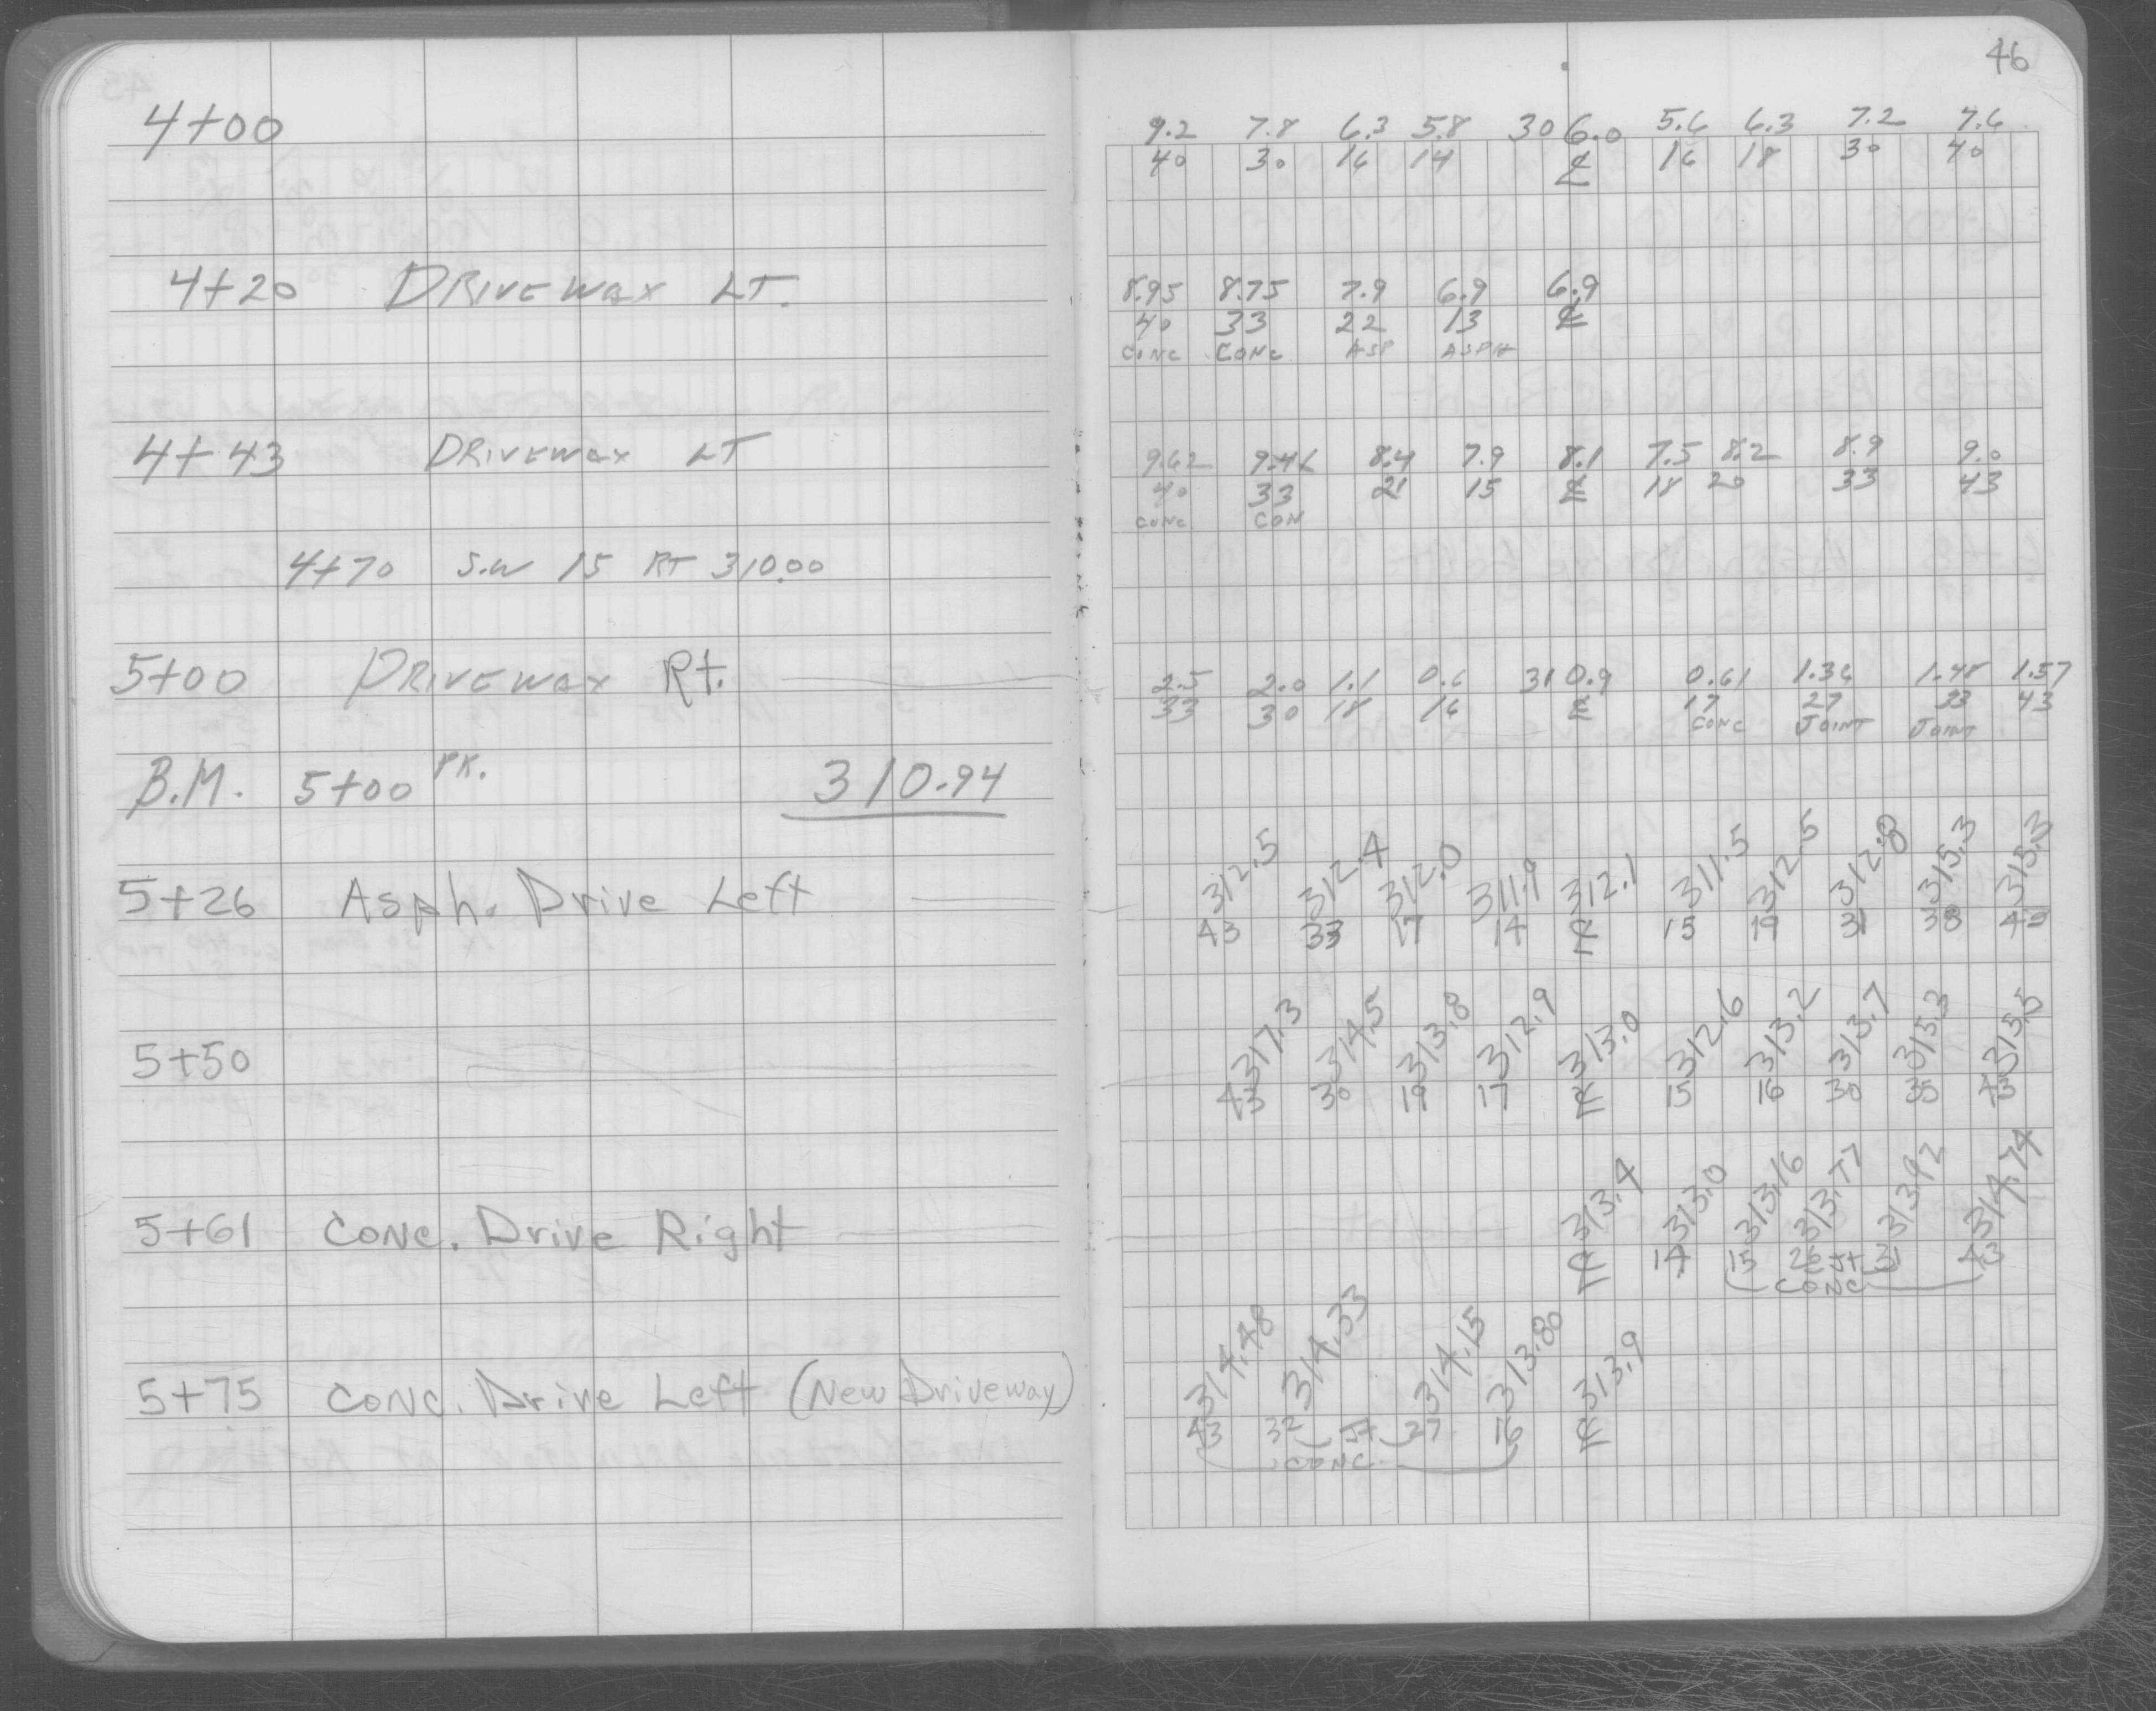 46
4+00 9.2 7.8 6.3 5.8 306.0 5.6 6.3 7.2 7.6
40 30 16 14 ℄ 16 18 30 40
4+20 DRIVEWAY LT. 8.95 8.75 7.9 6.9 6.9
40 33 22 13 ℄
CONC CONC ASP ASPH
4+43 DRIVEWAY LT 9.62 9.46 8.4 7.9 8.1 7.5 8.2 8.9 9.0
40 33 21 15 ℄ 18 20 33 43
CONC CON
4+70 S.W 15 RT 310.00
5+00 DRIVEWAY Rt. 2.5 2.0 1.1 0.6 310.9 0.61 1.36 1.48 1.57
33 30 18 16 ℄ 17 27 33 43
CONC JOINT JOINT
B.M. 5+00 PK. 310.94
5+26 Asph. Drive Left 312.5 312.4 312.0 311.9 312.1 311.5 312.5 312.8 315.3 315.3
43 33 17 14 ℄ 15 19 31 38
5+50 317.3 314.5 313.8 312.9 313.0 312.6 313.2 313.7 315.3 315.5
43 30 19 17 ℄ 15 16 30 35 43
5+61 CONC. Drive Right 313.4 313.0 313.16 313.77 313.92 314.74
℄ 14 15 26 Jt 31 43
CONC
5+75 CONC. Drive Left (New Driveway) 314.48 314.33 314.15 313.80 313.9
43 32 ( Jt ) 27 16 ℄
CONC.